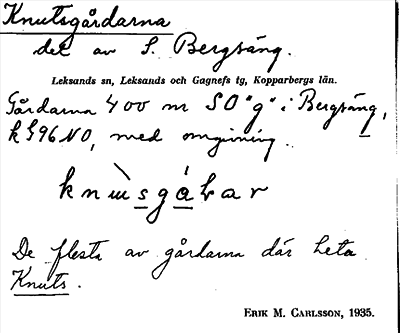 Knutsgårdarna
del av S. Bergsäng.
Leksands sn, Leksands och Gagnefs tg, Kopparbergs län.
Gårdarna 400 m SO "g" i Bergsäng,
k 596 NO, med omgivning.
De flesta av gårdarna där heta
Knuts.
ERIK M. CARLSSON, 1935.